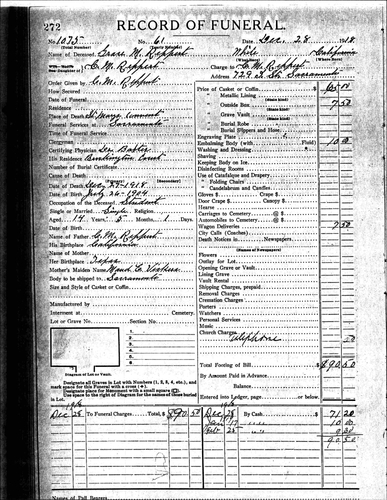 272
RECORD OF FUNERAL.
No. 1075 No. 61 Date, Dec. 28 1918
(Total Number) (Yearly Number)
Name of Deceased, Grace M. Reppert White California
(Where Born)
C. M. Reppert Charge to C. M. Reppert
Order Given by C. M. Reppert Address 729 Sacramento
How Secured
Date of Funeral
Residence
Place of Death
Funeral Services at Sacramento
Time of Funeral Service
Clergyman
Certifying Physician
His Residence Court
Number of Burial Certificate
Cause of Death
(Secondary)
Date of Death 27-1918
Date of Birth 26-1904
Occupation of the Deceased Student
Single or Married Single Religion
Aged 14 Years 5 Months 1 Days
Date of Birth
Name of Father C. M. Reppert
His Birthplace California
Name of Mother
Her Birthplace Texas
Mother's Maiden Name Maud
Body to be shipped to Sacramento
Size and Style of Casket or Coffin
Manufactured by
Interment at Cemetery
Lot or Grave No. Section No.
1
2
3
4
5
6
Diagram of Lot or Vault.
Designate all Graves in Lot with Numbers (1, 2, 3, 4, etc.), and
mark space for this Funeral with a cross (+).
Designate place for Monument with a small square (□).
Use space to the right of Diagram for the names of those buried
in Lot.
Price of Casket or Coffin
" Metallic Lining
(State kind)
" Outside Box 7.50
(State kind)
" Grave Vault
" Burial Robe
(State kind)
" Burial Slippers and Hose
Engraving Plate
Embalming Body (with Fluid) 10.00
Washing and Dressing
Shaving
Keeping Body on Ice
Disinfecting Rooms
Use of Catafalque and Drapery
" Folding Chairs
" Candelabrum and Candles
Gloves $ Crape $
Door Crape $ Canopy
Hearse
Carriages to Cemetery @ $
Automobiles to Cemetery @ $
Wagon Deliveries 7.50
City Calls (Coaches)
Death Notices in Newspapers
(Names of Newspapers)
Flowers
Outlay for Lot
Opening Grave or Vault
Lining Grave
Vault Rental
Shipping Charges, prepaid
Removal Charges
Cremation Charges
Porters
Watchers
Personal Services
Music
Church Charges
Telephone .50
Total Footing of Bill $ 90.50
By Amount Paid in Advance
Balance
Entered into Ledger, page or below.
Dec 28 To Funeral Charges Total, $ 90.50 Dec 28 By Cash $ 71.20
17 " " 10.00
Feb 28 " " 9.30
90.50
Names of Pall Bearers